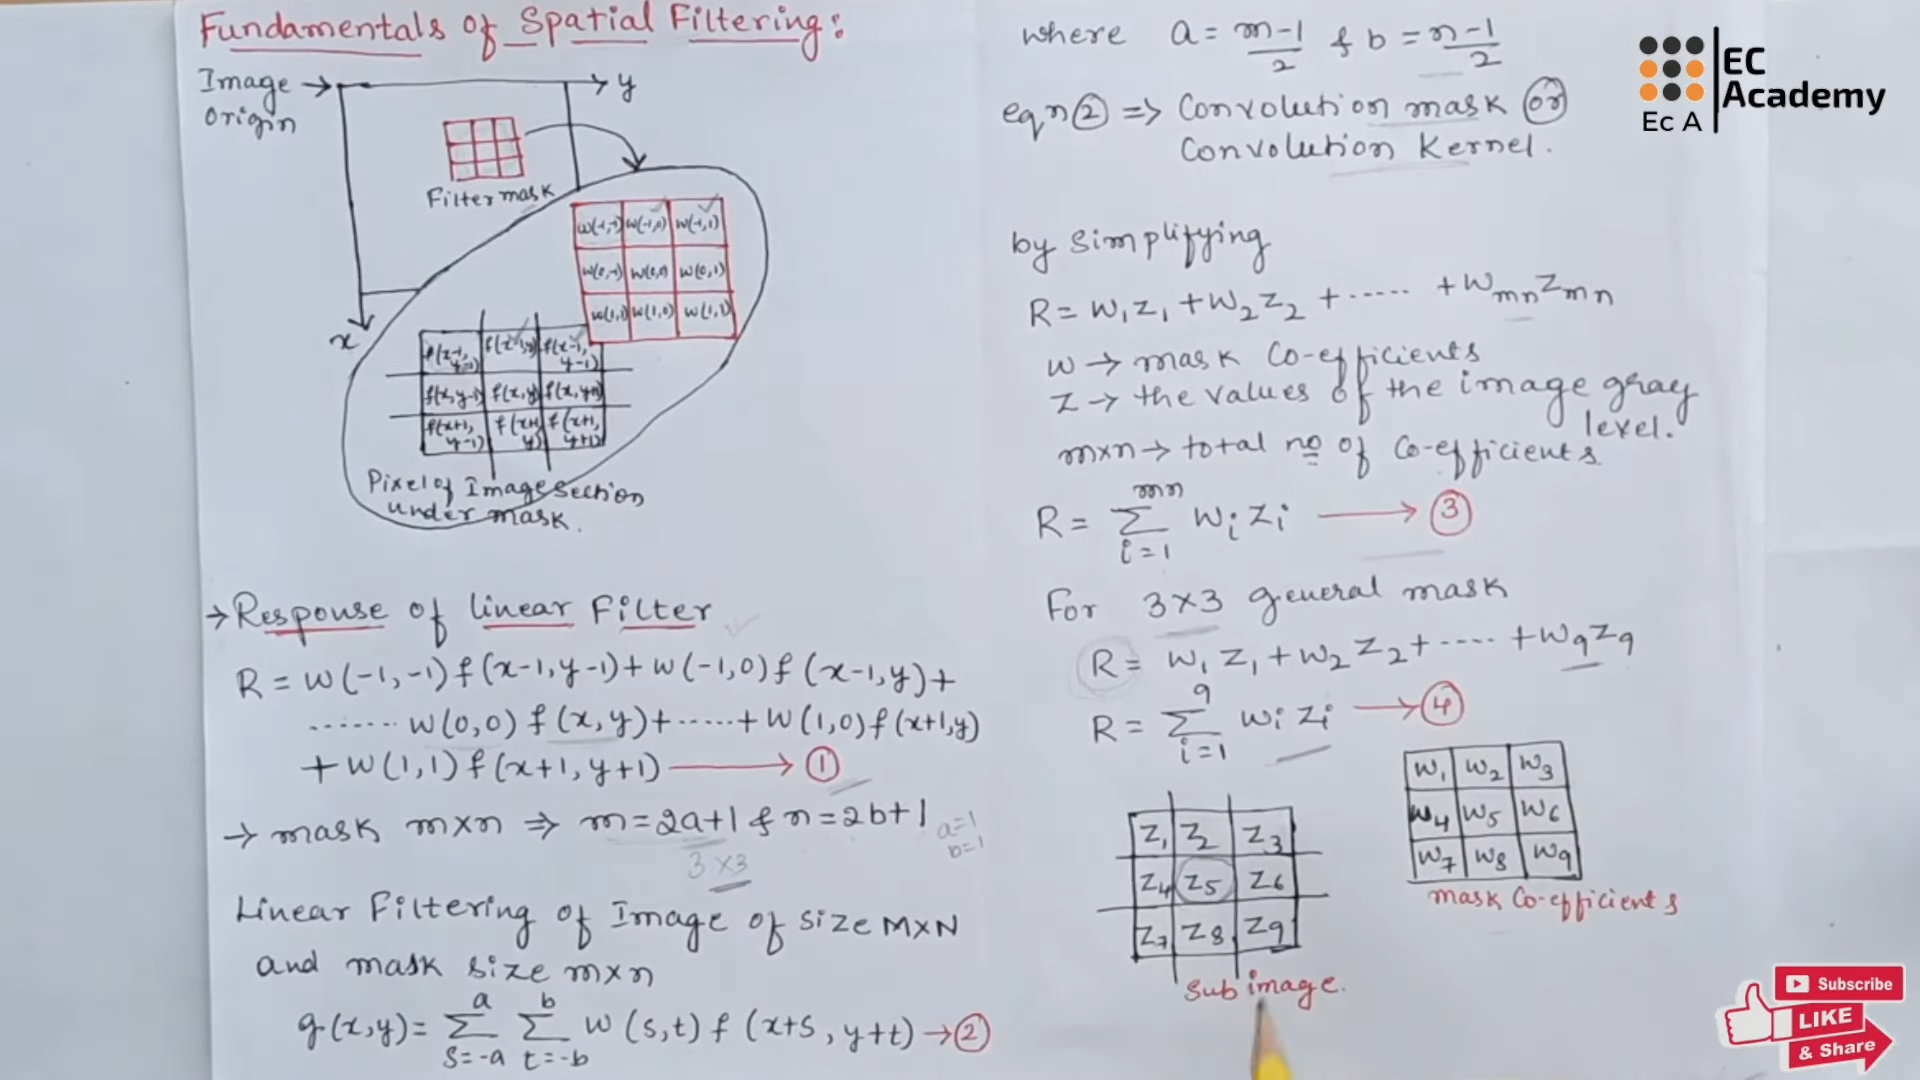 Fundamentals of Spatial Filtering:
Image origin
y
x
Filter mask
w(-1,-1) w(-1,0) w(-1,1)
w(0,-1) w(0,0) w(0,1)
w(1,1) w(1,0) w(1,1)
f(x-1, y-1) f(x-1,y) f(x-1, y-1)
f(x,y-1) f(x,y) f(x,y+1)
f(x+1, y-1) f(x+1 y) f(x+1, y+1)
Pixel of Image section
under mask.
→ Response of linear Filter
R = w(-1,-1) f(x-1,y-1) + w(-1,0) f(x-1,y) +
....... w(0,0) f(x,y) + ..... + w(1,0) f(x+1,y)
+ w(1,1) f(x+1, y+1) → ①
→ mask m×n ⇒ m=2a+1 & n=2b+1
a=1
b=1
3×3
Linear Filtering of Image of size M×N
and mask size m×n
g(x,y) = Σ_{s=-a}^{a} Σ_{t=-b}^{b} w(s,t) f(x+s, y+t) → ②
where a = m-1/2 & b = n-1/2
eqn ② ⇒ Convolution mask or
Convolution Kernel.
by simplifying
R = w₁z₁ + w₂z₂ + ..... + w_mn z_mn
w → mask Co-efficients
z → the values of the image gray
level.
m×n → total no of Co-efficients.
R = Σ_{i=1}^{mn} wᵢ zᵢ → ③
For 3×3 general mask
R = w₁z₁ + w₂z₂ + .... + w₉z₉
R = Σ_{i=1}^{9} wᵢ zᵢ → ④
z₁ z₂ z₃
z₄ z₅ z₆
z₇ z₈ z₉
Sub image.
w₁ w₂ w₃
w₄ w₅ w₆
w₇ w₈ w₉
mask Co-efficients
EC
Academy
Ec A
Subscribe
LIKE
& Share